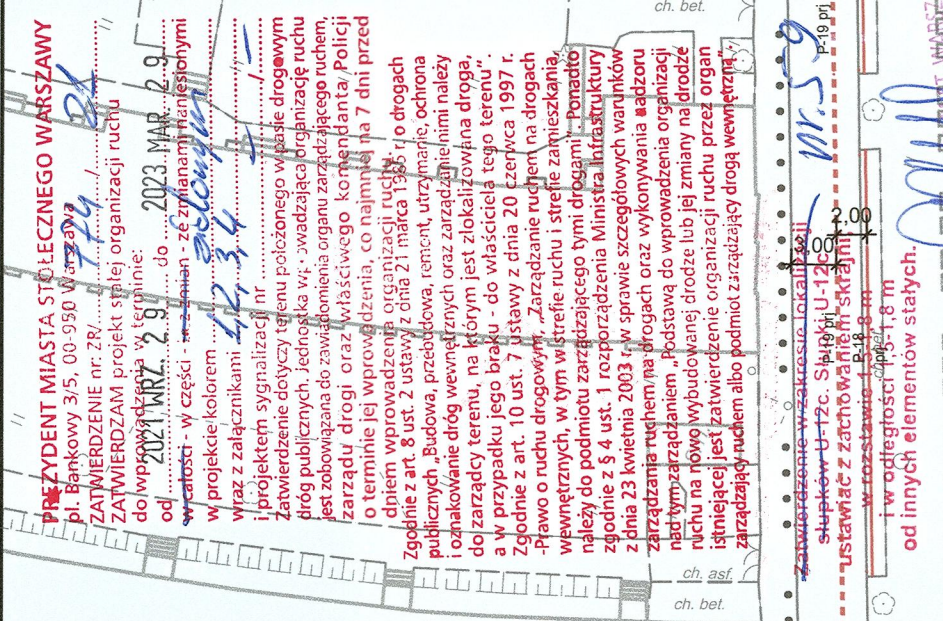 PREZYDENT MIASTA STOŁECZNEGO WARSZAWY
pl. Bankowy 3/5, 00-950 Warszawa
ZATWIERDZENIE nr: ZR/ 774 / 21
ZATWIERDZAM projekt stałej organizacji ruchu
do wprowadzenia w terminie:
od 2021 WRZ. 2 9. do 2023 MAR 2 9
w całości - w części - ze zmianami naniesionymi
w projekcie kolorem zielonym
wraz z załącznikami 1,2,3,4
i projektem sygnalizacji nr — / —
Zatwierdzenie dotyczy terenu położonego w pasie drogowym
dróg publicznych, jednostka wprowadzająca organizację ruchu
jest zobowiązana do zawiadomienia organu zarządzającego ruchem,
zarządu drogi oraz właściwego komendanta Policji
o terminie jej wprowadzenia, co najmniej na 7 dni przed
dniem wprowadzenia organizacji ruchu.
Zgodnie z art. 8 ust. 2 ustawy z dnia 21 marca 1985 r. o drogach
publicznych „Budowa, przebudowa, remont, utrzymanie, ochrona
i oznakowanie dróg wewnętrznych oraz zarządzanie nimi należy
do zarządcy terenu, na którym jest zlokalizowana droga,
a w przypadku jego braku - do właściciela tego terenu”.
Zgodnie z art. 10 ust. 7 ustawy z dnia 20 czerwca 1997 r.
-Prawo o ruchu drogowym „Zarządzanie ruchem na drogach
wewnętrznych, w tym w strefie ruchu i strefie zamieszkania,
należy do podmiotu zarządzającego tymi drogami”. Ponadto
zgodnie z § 4 ust. 1 rozporządzenia Ministra Infrastruktury
z dnia 23 kwietnia 2003 r. w sprawie szczegółowych warunków
zarządzania ruchem na drogach oraz wykonywania nadzoru
nad tym zarządzaniem „Podstawą do wprowadzenia organizacji
ruchu na nowo wybudowanej drodze lub jej zmiany na drodze
istniejącej jest zatwierdzenie organizacji ruchu przez organ
zarządzający ruchem albo podmiot zarządzający drogą wewnętrzną.
Zatwierdzenie w zakresie lokalizacji
słupków U-12c. Słupki U-12c
ustawiać z zachowaniem skrajni
w rozstawie 1,3-1,8 m
i w odległości 1,3-1,8 m
od innych elementów stałych.
nr. 59
P-19 prj
P-19 prj
P-18
2,00
ch. bet.
ch. asf.
ch. bet.